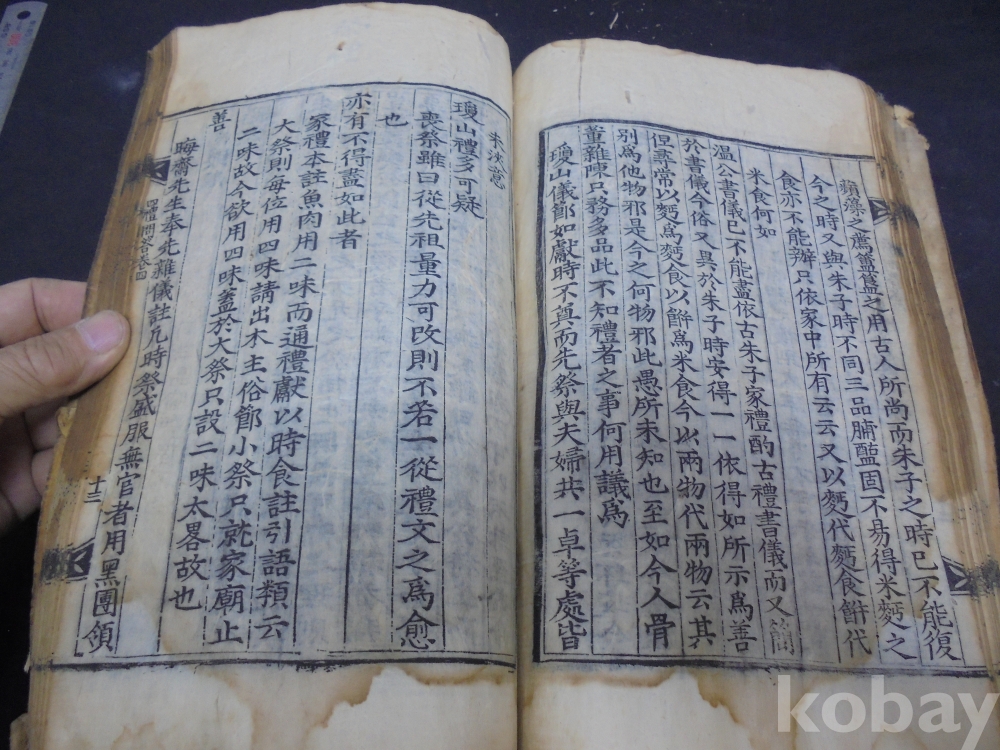 蘋藻之薦簠簋之用古人所尚而朱子之時已不能復
今之時又與朱子時不同三品脯醢固不易得米麪之
食亦不能辦只依家中所有云云又以麪代麪食餠代
米食何如
溫公書儀已不能盡依古朱子家禮酌古禮書儀而又簡
於書儀今俗又異於朱子時安得一一依得如所示爲善
但尋常以麪爲麪食以餠爲米食今以兩物代兩物云其
別爲他物邪是今之何物邪此愚所未知也至如今人骨
董雜陳只務多品此不知禮者之事何用議爲
瓊山儀節如獻時不奠而先祭與夫婦共一卓等處皆
未決意
瓊山禮多可疑
喪祭雖曰從先祖量力可改則不若一從禮文之爲愈
也
亦有不得盡如此者
家禮本註魚肉用二味而通禮獻以時食註引語類云
大祭則每位用四味請出木主俗節小祭只就家廟止
二味故今欲用四味蓋於大祭只設二味太畧故也
善
晦齋先生奉先雜儀註凡時祭盛服無官者用黑團領
十三
kobay